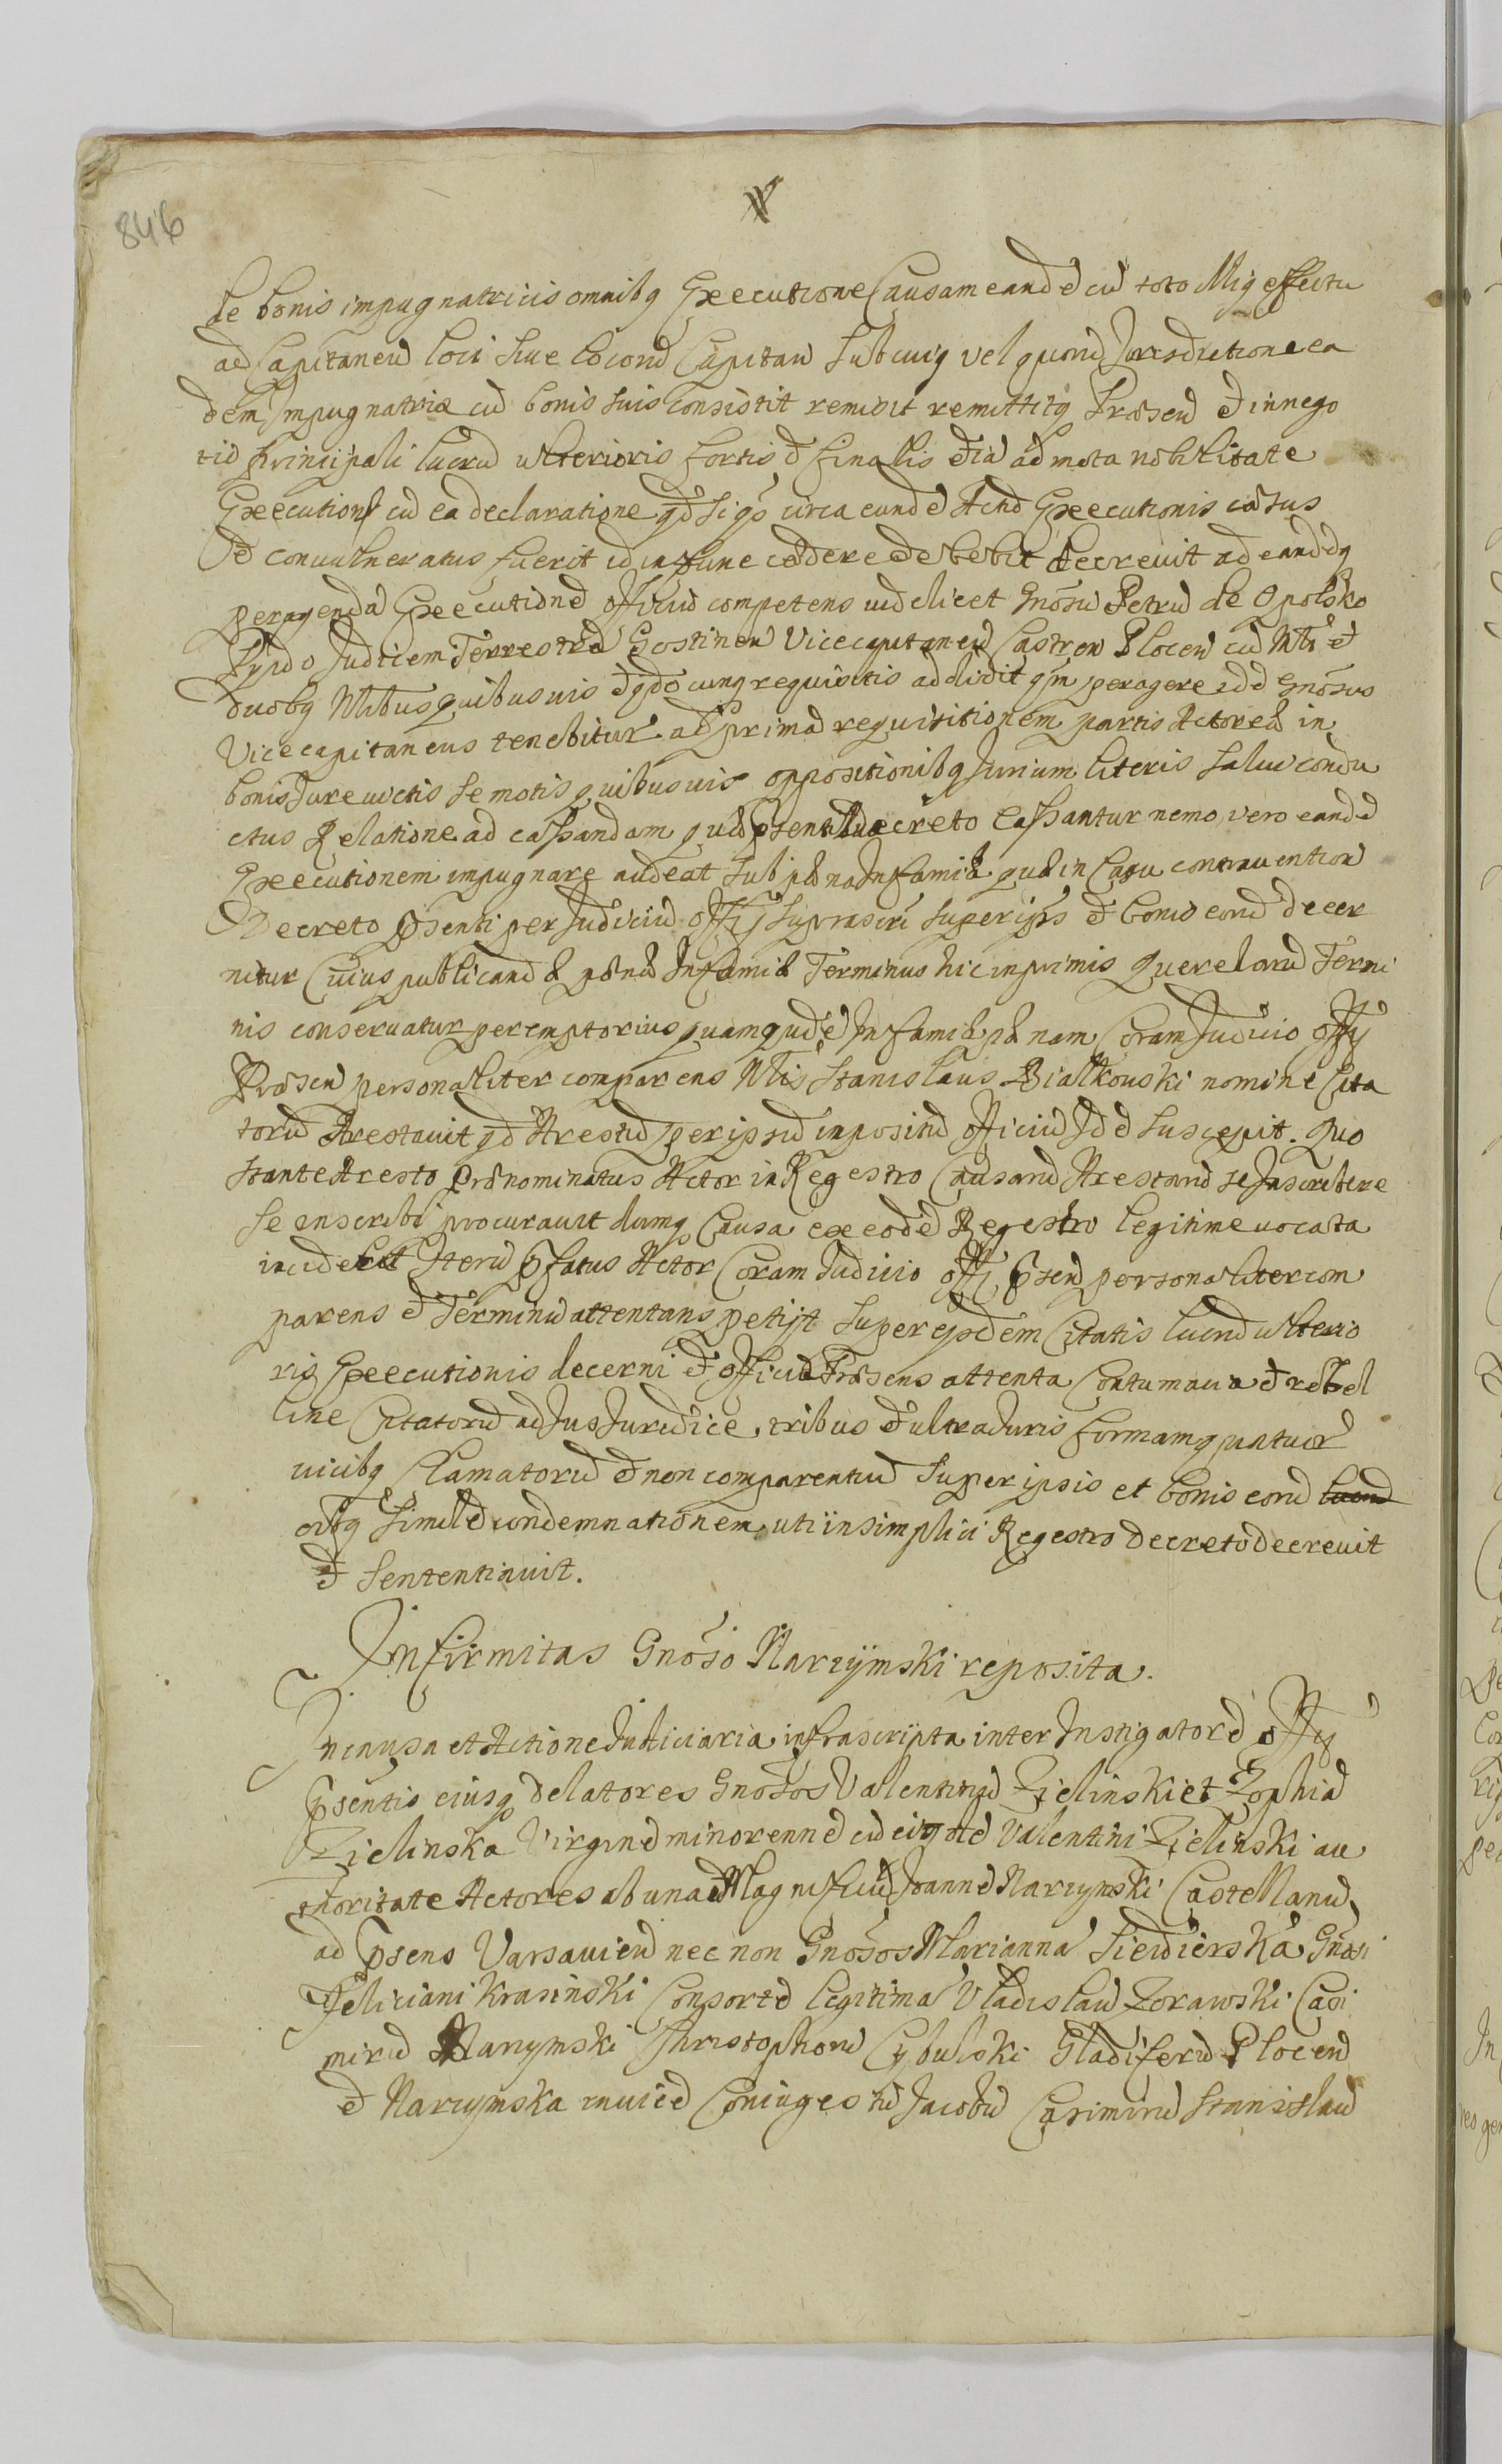 846
de bonis impugnatricis omnibq Executione Causam eandē cū toto Mlg effectu
ad Capitaneū loci siue locorū Capitan sub cuiq vel quorū Jurisdictione ea
dem Impugnatrix cū bonis suis consistit remisit remittitq Præsen et in nego
tio principali lucrū ulterioris fortis et finalis etiā admota nobilitate
Execution cū ea declaratione qd si qs circa eundē Actū Executionis cæsus
et conuulneratus fuerit id in fune cedere debebit decreuit ad eandēq
peragendā Executionē officiū competens videlicet Gnosū Petrū de Opolsko
Judicem Terrestrē Gostinen Vicecapitaneū Castren Plocen cū Mti et
duobq Nlibus quibusuis et qdocunq requisitis addidit qm peragere idē Gnosus
Vicecapitaneus tenebitur ad primā requisitionem partis Actoreæ in
bonis Jure victis semotis quibusuis oppositionibq Jurium literis salui condu
ctus Relatione ad cassandam quæ psenti decreto cassantur nemo vero eandē
Executionem impugnare audeat sub pæna Infamiæ quæ in Casu contrauention
Decreto psenti per Judiciū offij suprascri super ipss et bonis eorū decer
nitur Cuius publicandæ pænæ Infamiæ Terminus hic in primis Querelarū Termi
nis conseruatur peremptorius quamquidē Infamiæ pænam Coram Judicio offij
Præsen personaliter comparens Nlis Stanislaus Białkouski nomine Cita
torū Arestauit qd Arestū per ipsū impositū officiū Idē suscepit. Quo
stante Aresto Prænominatus Actor in Regestro Causarū Arestarū se Inscribere
se enscribi procurauit dumq Causa ex eodē Regestro legitime vocata
inciderit Iterū pfatus Actor Coram Judicio offij psen personaliter com
parens et Terminū attentans petijt super ejsdem Citatis lucrū ulterio
ris Executionis decerni et officiū Præsens attenta Contumacia et rebel
line Citatorū ad Jus Juridice, tribus et ultra Juris formam quatuor
vicibq Clamatorū et non comparentiū super ipsis et bonis eorū lucrū
oibq similē condemnationem, uti in simplici Regestro decreto decreuit
et sententiauit.
Infirmitas Gnosō Narzÿmski reposita.
In causa et Actione Judiciaria infrascripta inter Instigatorē offij
psentis eiusq delatores Gnosos Valentinū Zielinski et Zophiā
Zielinska Virginē minorennē cū eig otē Valentini Zielinski au
thoritate Actores ab una et Magnificū Joannē Narzymski Castellanū
ad psens Varsauien nec non Gnosos Mariannā Sierdzierskā Gnosi
Feliciani Krasinski Consortē legitimā Vladislaū Zorawski Casi
mirū Narzymski Christophorū Cybulski Gladiferū Plocen
et Narzymska inuicē Coniuges tū Jacobū Casimirū Stanislaū